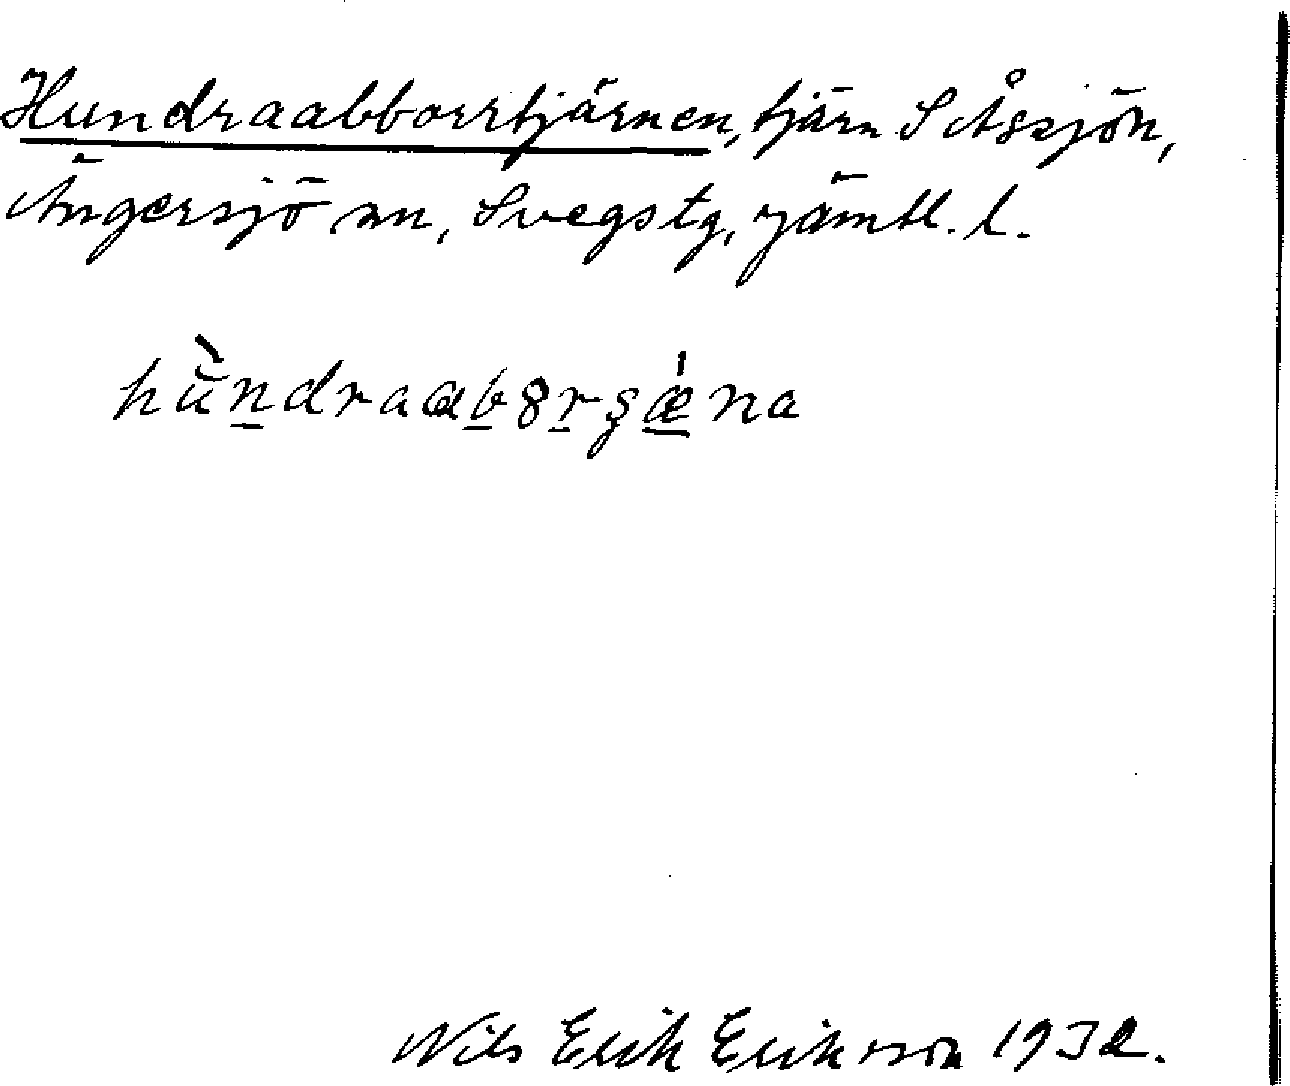 Hundraabborrtjärnen, tjärn S Åssjön,
Ängersjö sn, Svegs tg, Jämtl. l.
hùndraabȣrʂǽna
Nils Erik Eriksson 1932.